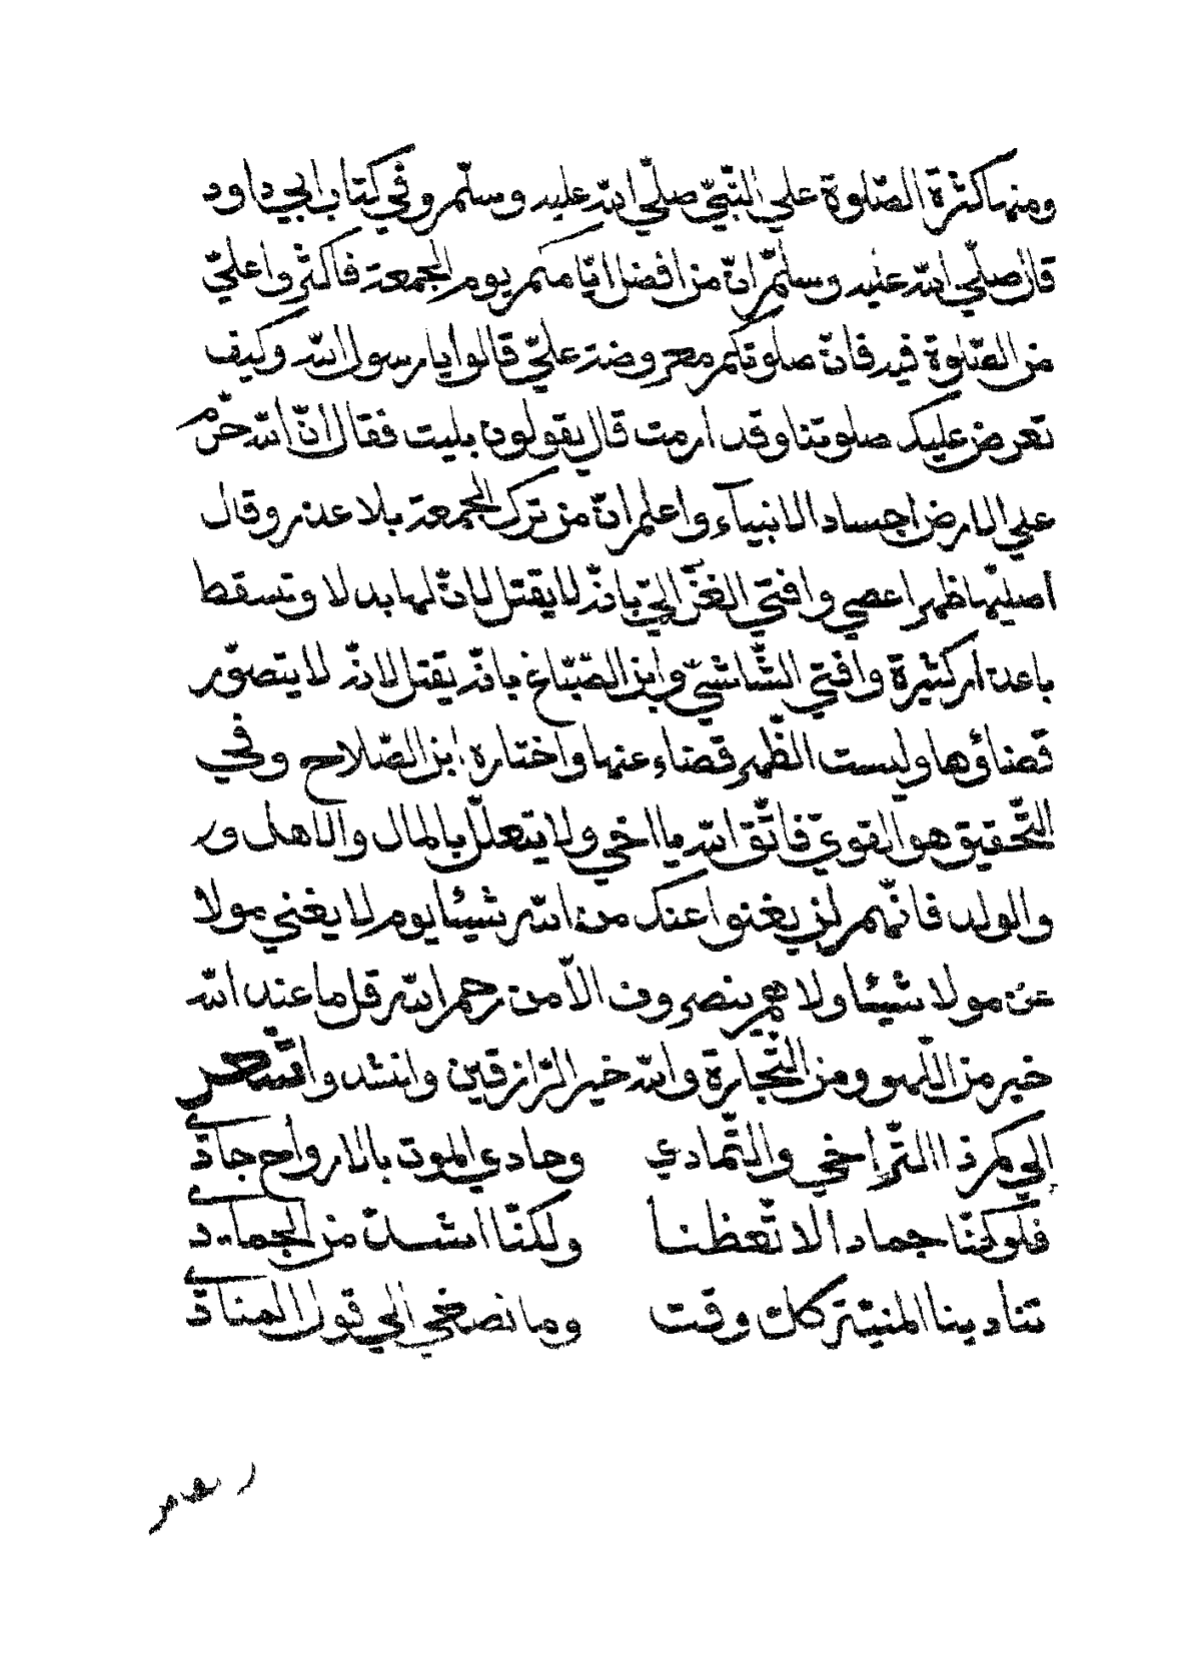 ومنها كثرة الصّلوة علي النّبيّ صلّي الله عليه وسلّم وفي كتاب ابي داود
قال صلّي الله عليه وسلّم انّ من افضل ايّامكم يوم الجمعة فاكثروا عليّ
من الصّلوة فيه فانّ صلوتكم معروضة عليّ قالوا يا رسول الله وكيف
تعرض عليك صلوتنا وقد ارمت قال يقولون بليت فقال انّ الله حرّم
علي الارض اجساد الانبيآء واعلم انّ من ترك الجمعة بلا عذر وقال
اصليها ظهرا عصي وافتي الغزّالي بانّه لا يقتل لانّ لها بدلا وتسقط
باعذار كثيرة وافتي الشّاشيّ وابن الصّبّاغ بانّه يقتل لانّه لا يتصوّر
قضاؤها وليست الظّهر قضاء عنها واختاره ابن الصّلاح وفي
التّحقيق هو القويّ فاتّق الله يا اخي ولا يتعلّل بالمال والاهل ور
والولد فانّهم لن يغنوا عنك من الله شيئا يوم لا يغني مولا
عن مولا شيئا ولا هم ينصروف الاّ من رحم الله قل ما عند الله
خير من اللّهو ومن التّجارة والله خير الرّازقين وانشد وافتحر
الي كم ذا التّراخي والتّمادي وحادي الموت بالارواح حادي
فلو كنّا جمادا لاتّعظنا ولكنّا اشدّ من الجماد
تنادينا المنيّة كلّ وقت وما نصغي الي قول المنادي